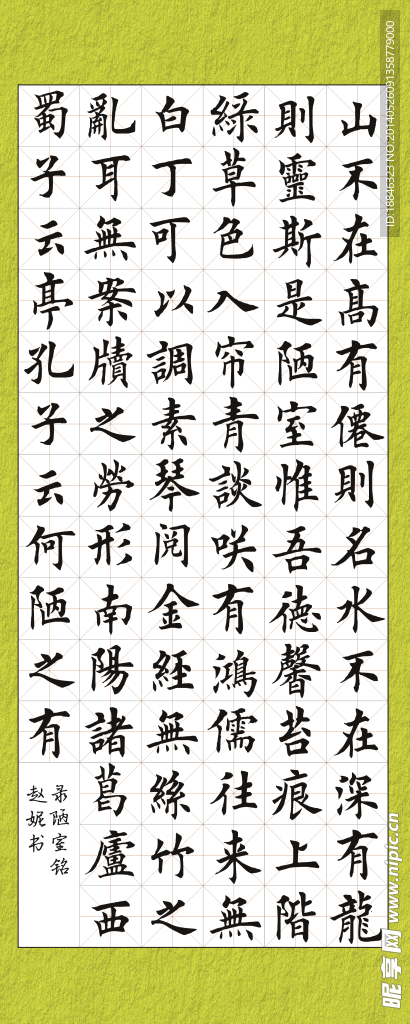 山不在高有僊則名水不在深有龍
則靈斯是陋室惟吾德馨苔痕上階
綠草色入帘青談咲有鴻儒往来無
白丁可以調素琴阅金經無絲竹之
亂耳無案牘之勞形南陽諸葛廬西
蜀子云亭孔子云何陋之有
录陋室铭
赵妮书
ID:18846323 NO:20140526091358779000
昵享网 www.nipic.cn